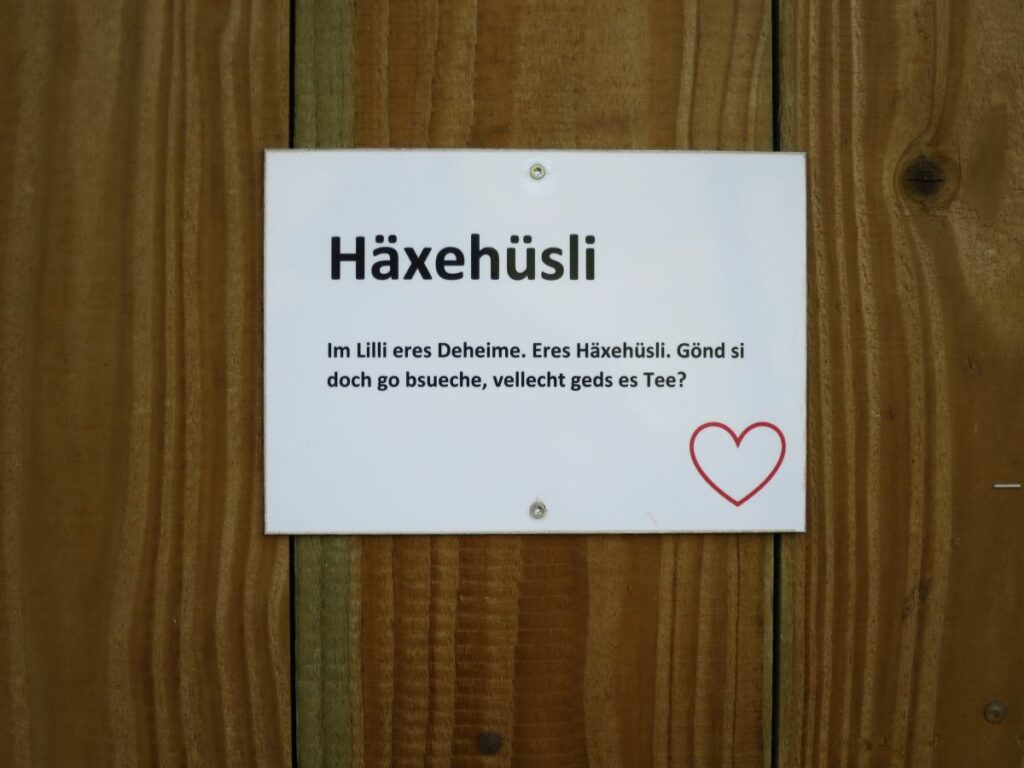 Häxehüsli
Im Lilli eres Deheime. Eres Häxehüsli. Gönd si
doch go bsueche, vellecht geds es Tee?